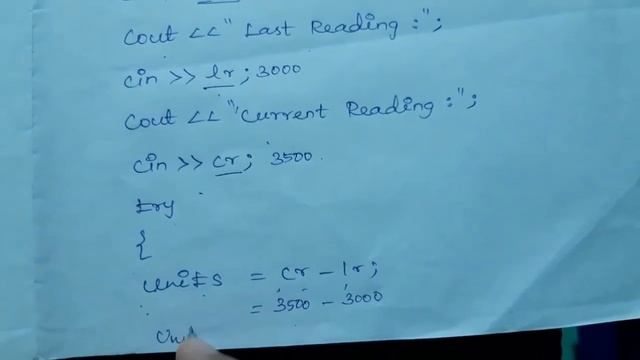 Cout <<" Last Reading :";
Cin >> lr; 3000
Cout <<"Current Reading :";
Cin >> cr; 3500
try
{
units = cr - lr;
= 3500 - 3000